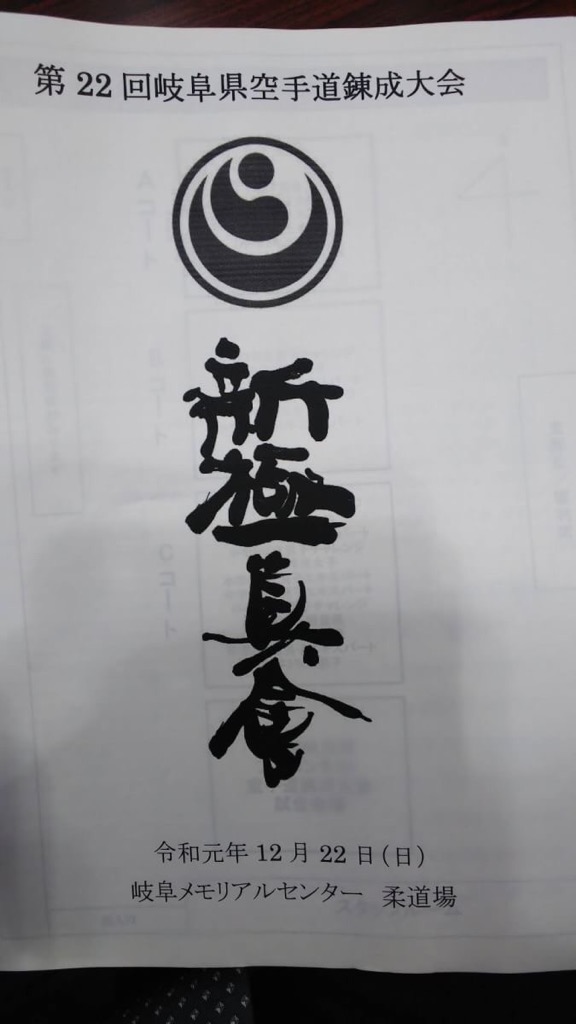 第 22 回岐阜県空手道錬成大会
新極真会
令和元年 12 月 22 日(日)
岐阜メモリアルセンター 柔道場